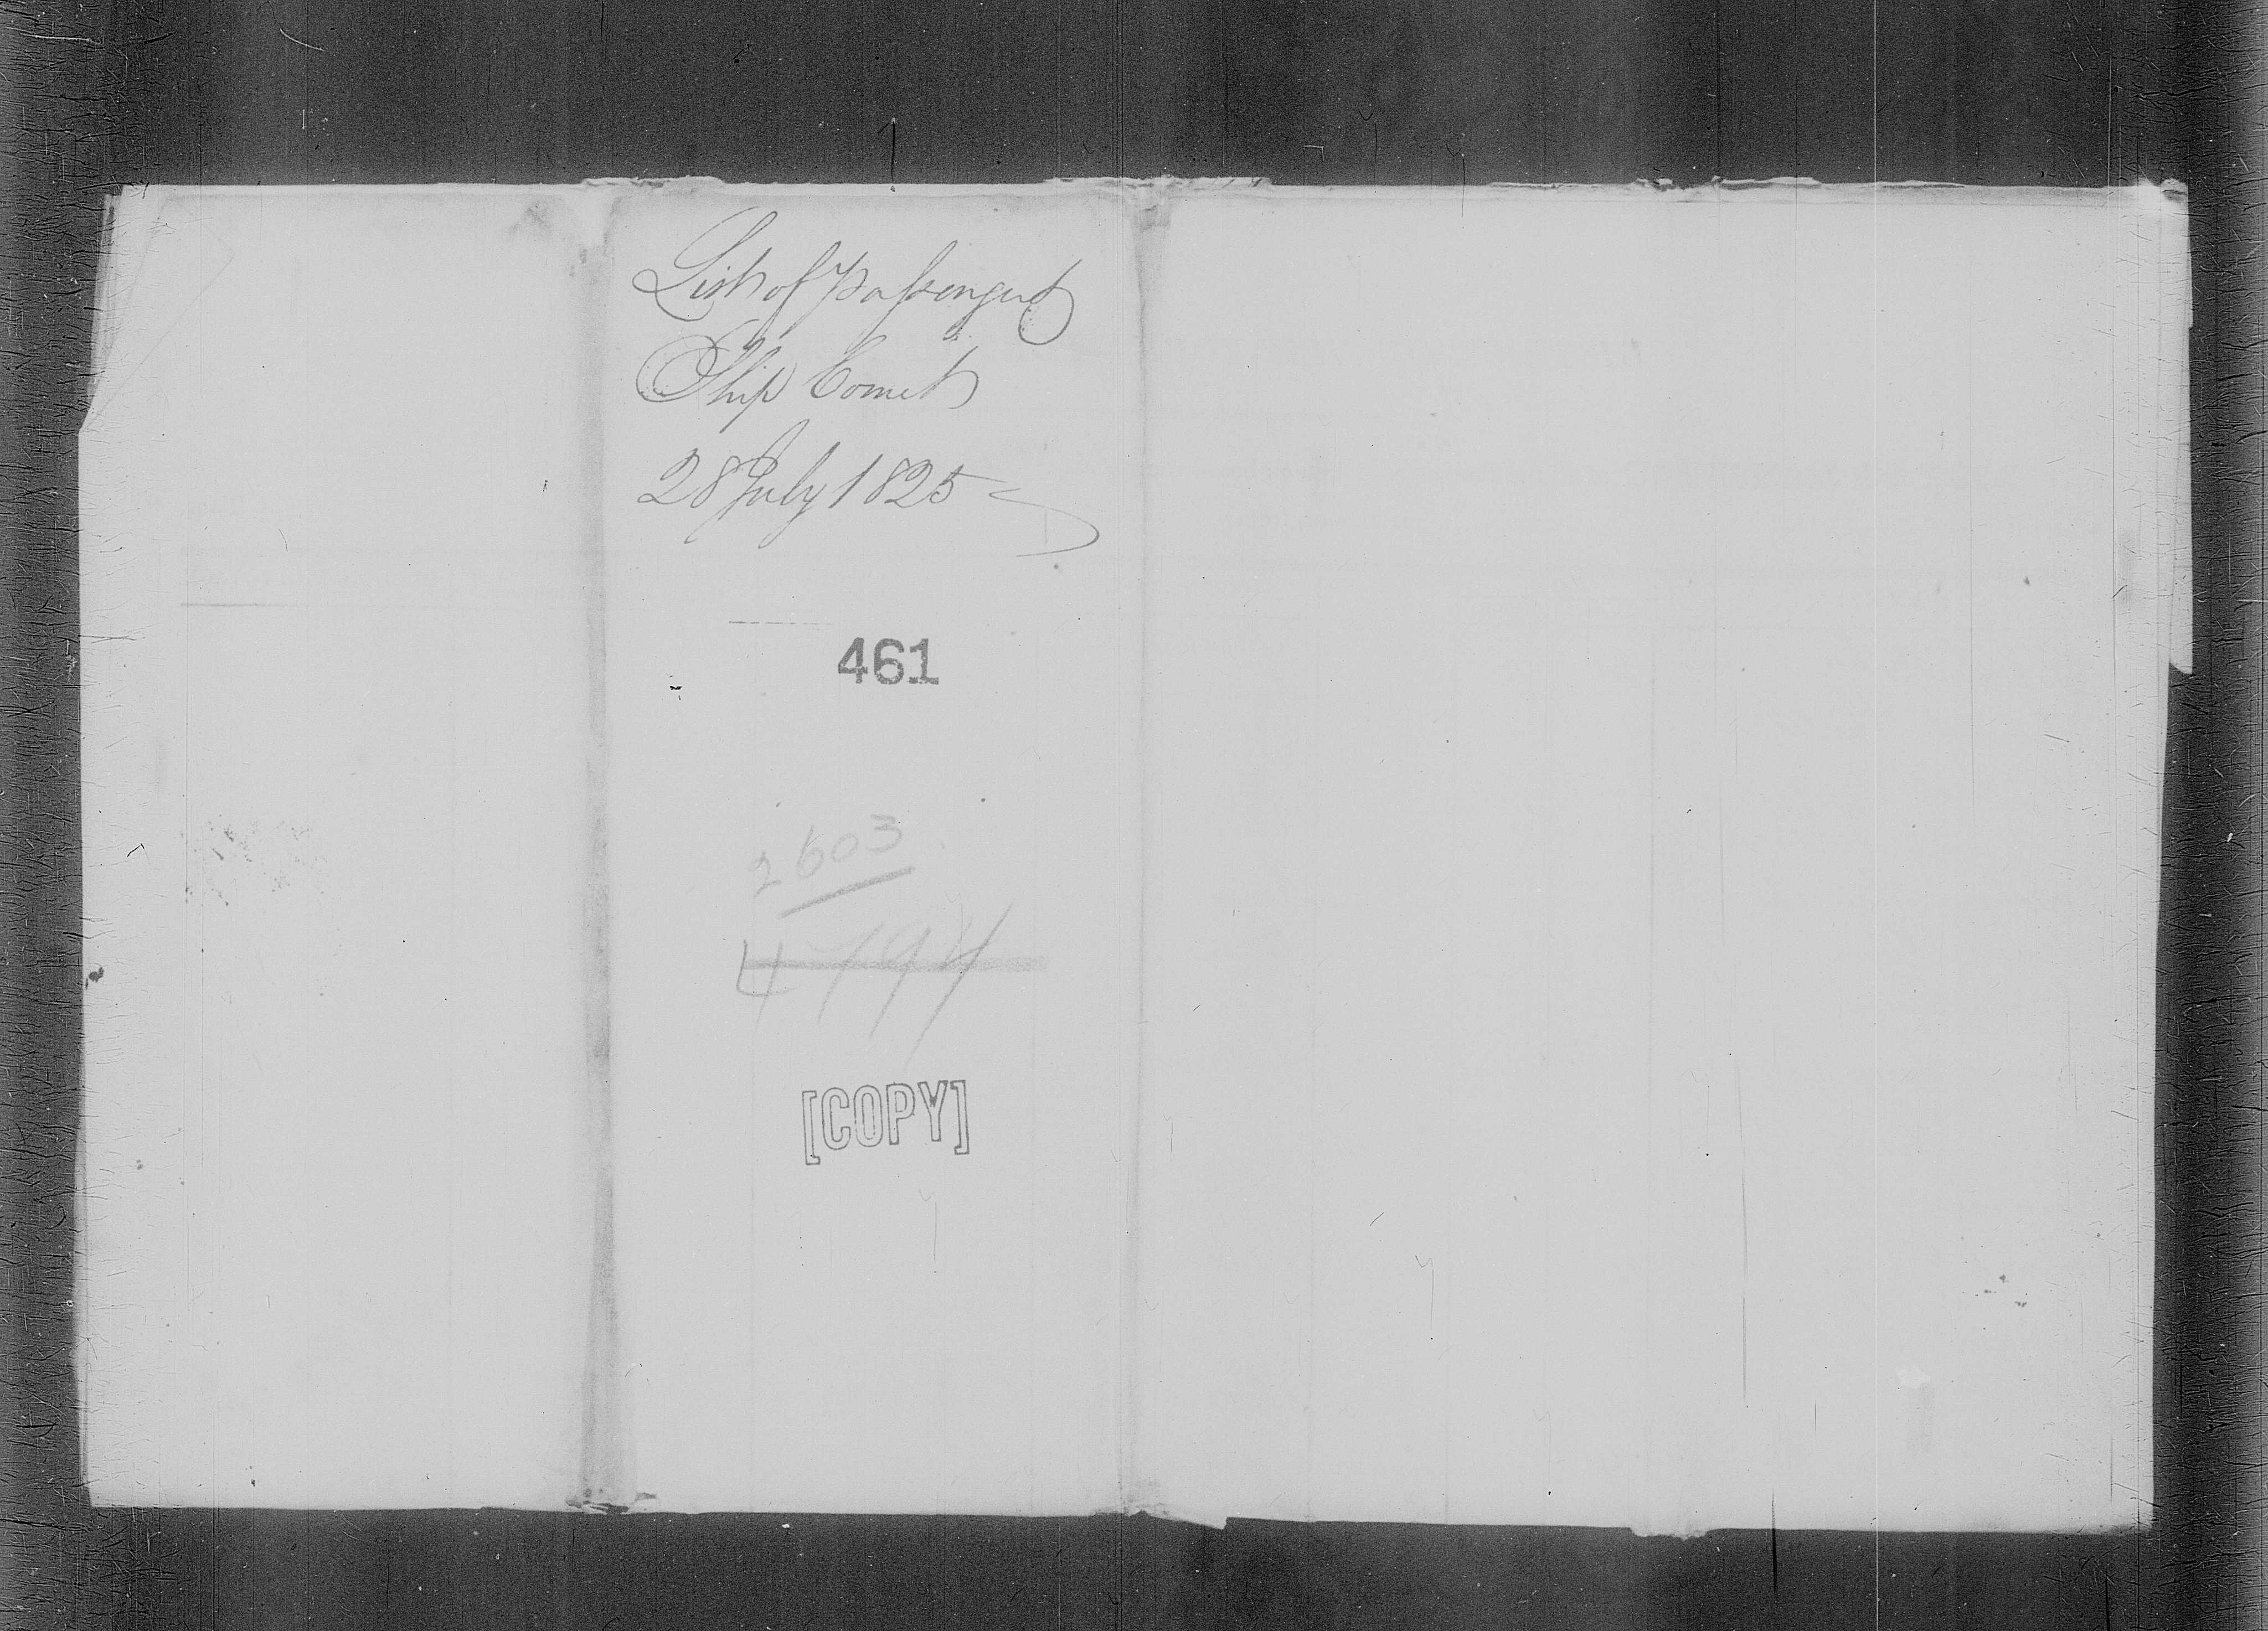 List of Passengers
Ship Comet
28 July 1825
461
2603
4794
[COPY]